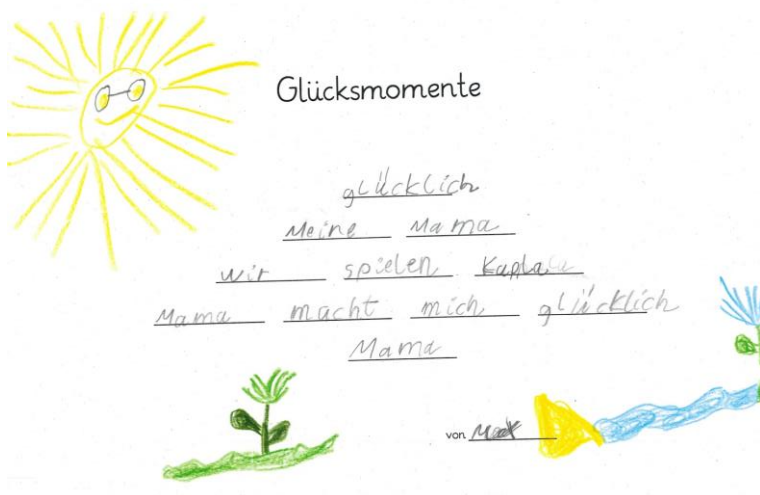 Glücksmomente
glücklich
Meine Mama
wir spielen Kapla
Mama macht mich glücklich
Mama
von